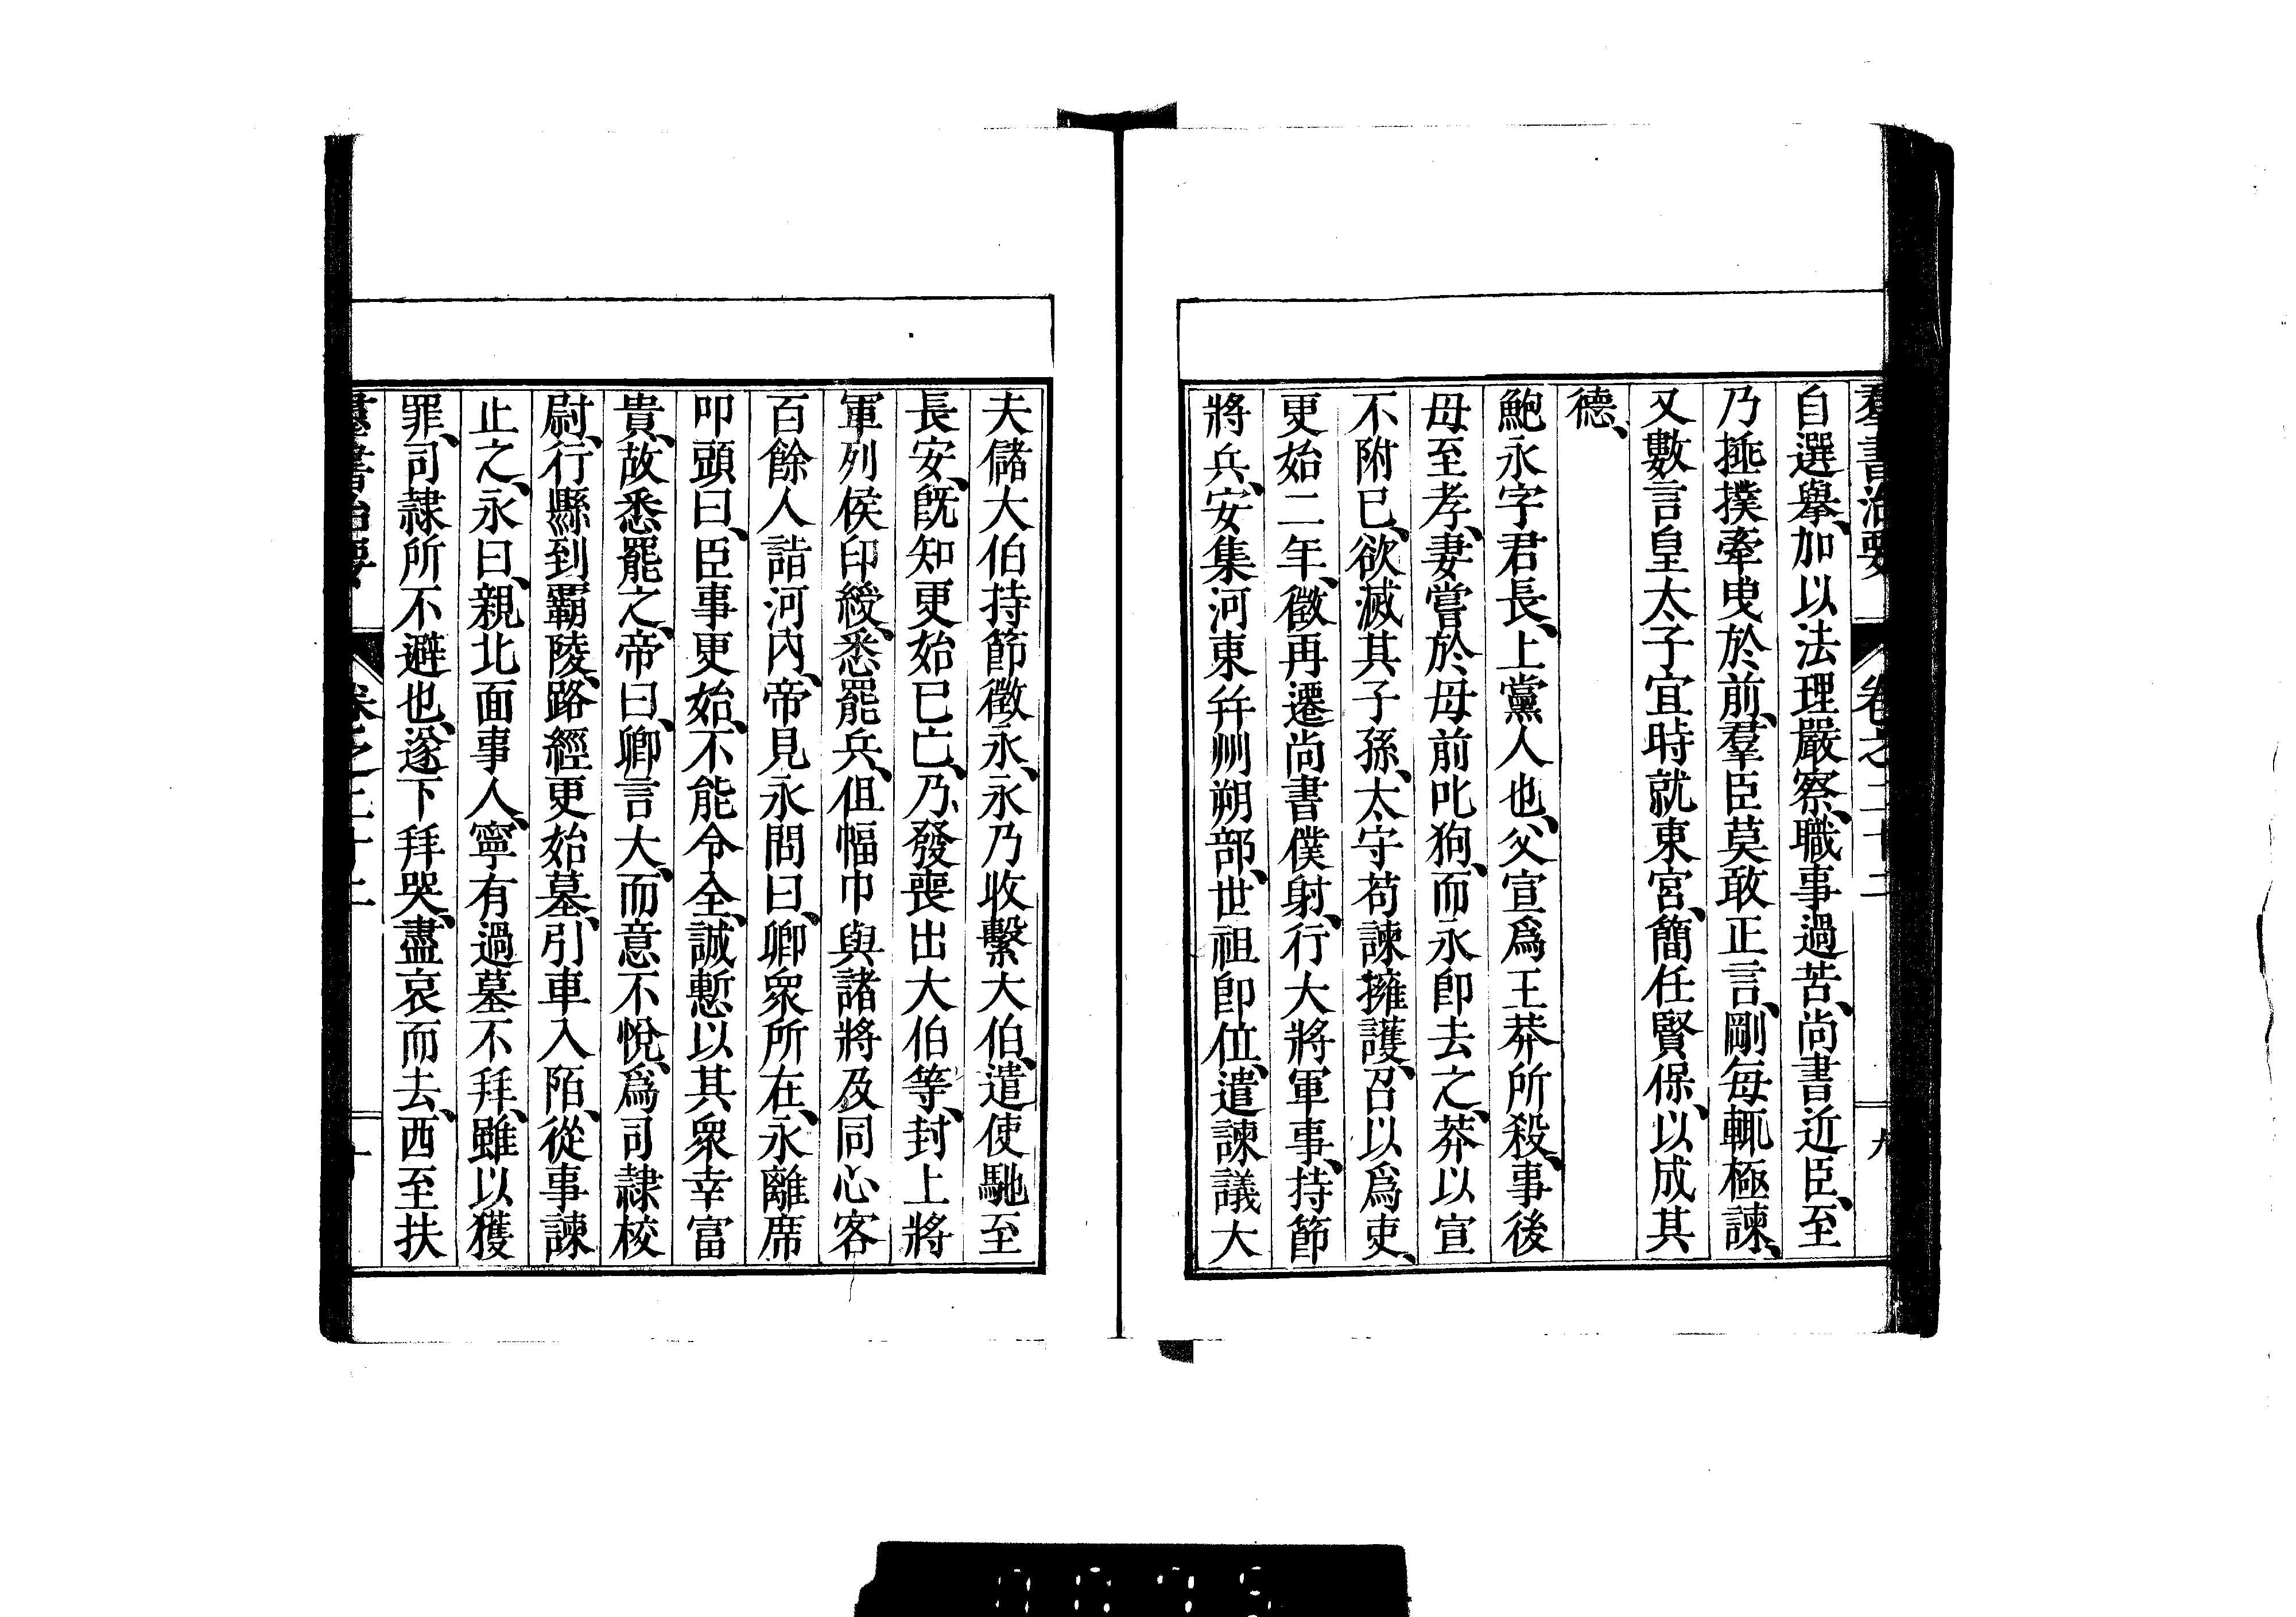 羣書治要 卷之二十二 九
自選擧、加以法理嚴察、職事過苦、尚書近臣、至
乃捶撲牽曳於前、羣臣莫敢正言、剛每輒極諫、
又數言皇太子宜時就東宮、簡任賢保、以成其
德、
鮑永字君長、上黨人也、父宣爲王莽所殺、事後
母至孝、妻嘗於母前叱狗、而永卽去之、莽以宣
不附已、欲滅其子孫、太守苟諫擁護、召以爲吏、
更始二年、徵再遷尚書僕射、行大將軍事、持節
將兵、安集河東幷州朔部、世祖卽位、遣諫議大
夫儲大伯持節徵永、永乃收繫大伯、遣使馳至
長安、旣知更始已亡、乃發喪出大伯等、封上將
軍列侯印綬、悉罷兵、但幅巾與諸將及同心客
百餘人詣河內、帝見永問曰、卿衆所在、永離席
叩頭曰、臣事更始、不能令全、誠慙以其衆幸富
貴、故悉罷之、帝曰、卿言大、而意不悅、爲司隷校
尉、行縣到霸陵、路經更始墓、引車入陌、從事諫
止之、永曰、親北面事人、寧有過墓不拜、雖以獲
罪、司隷所不避也、遂下拜哭、盡哀而去、西至扶
羣書治要 卷之二十二 十